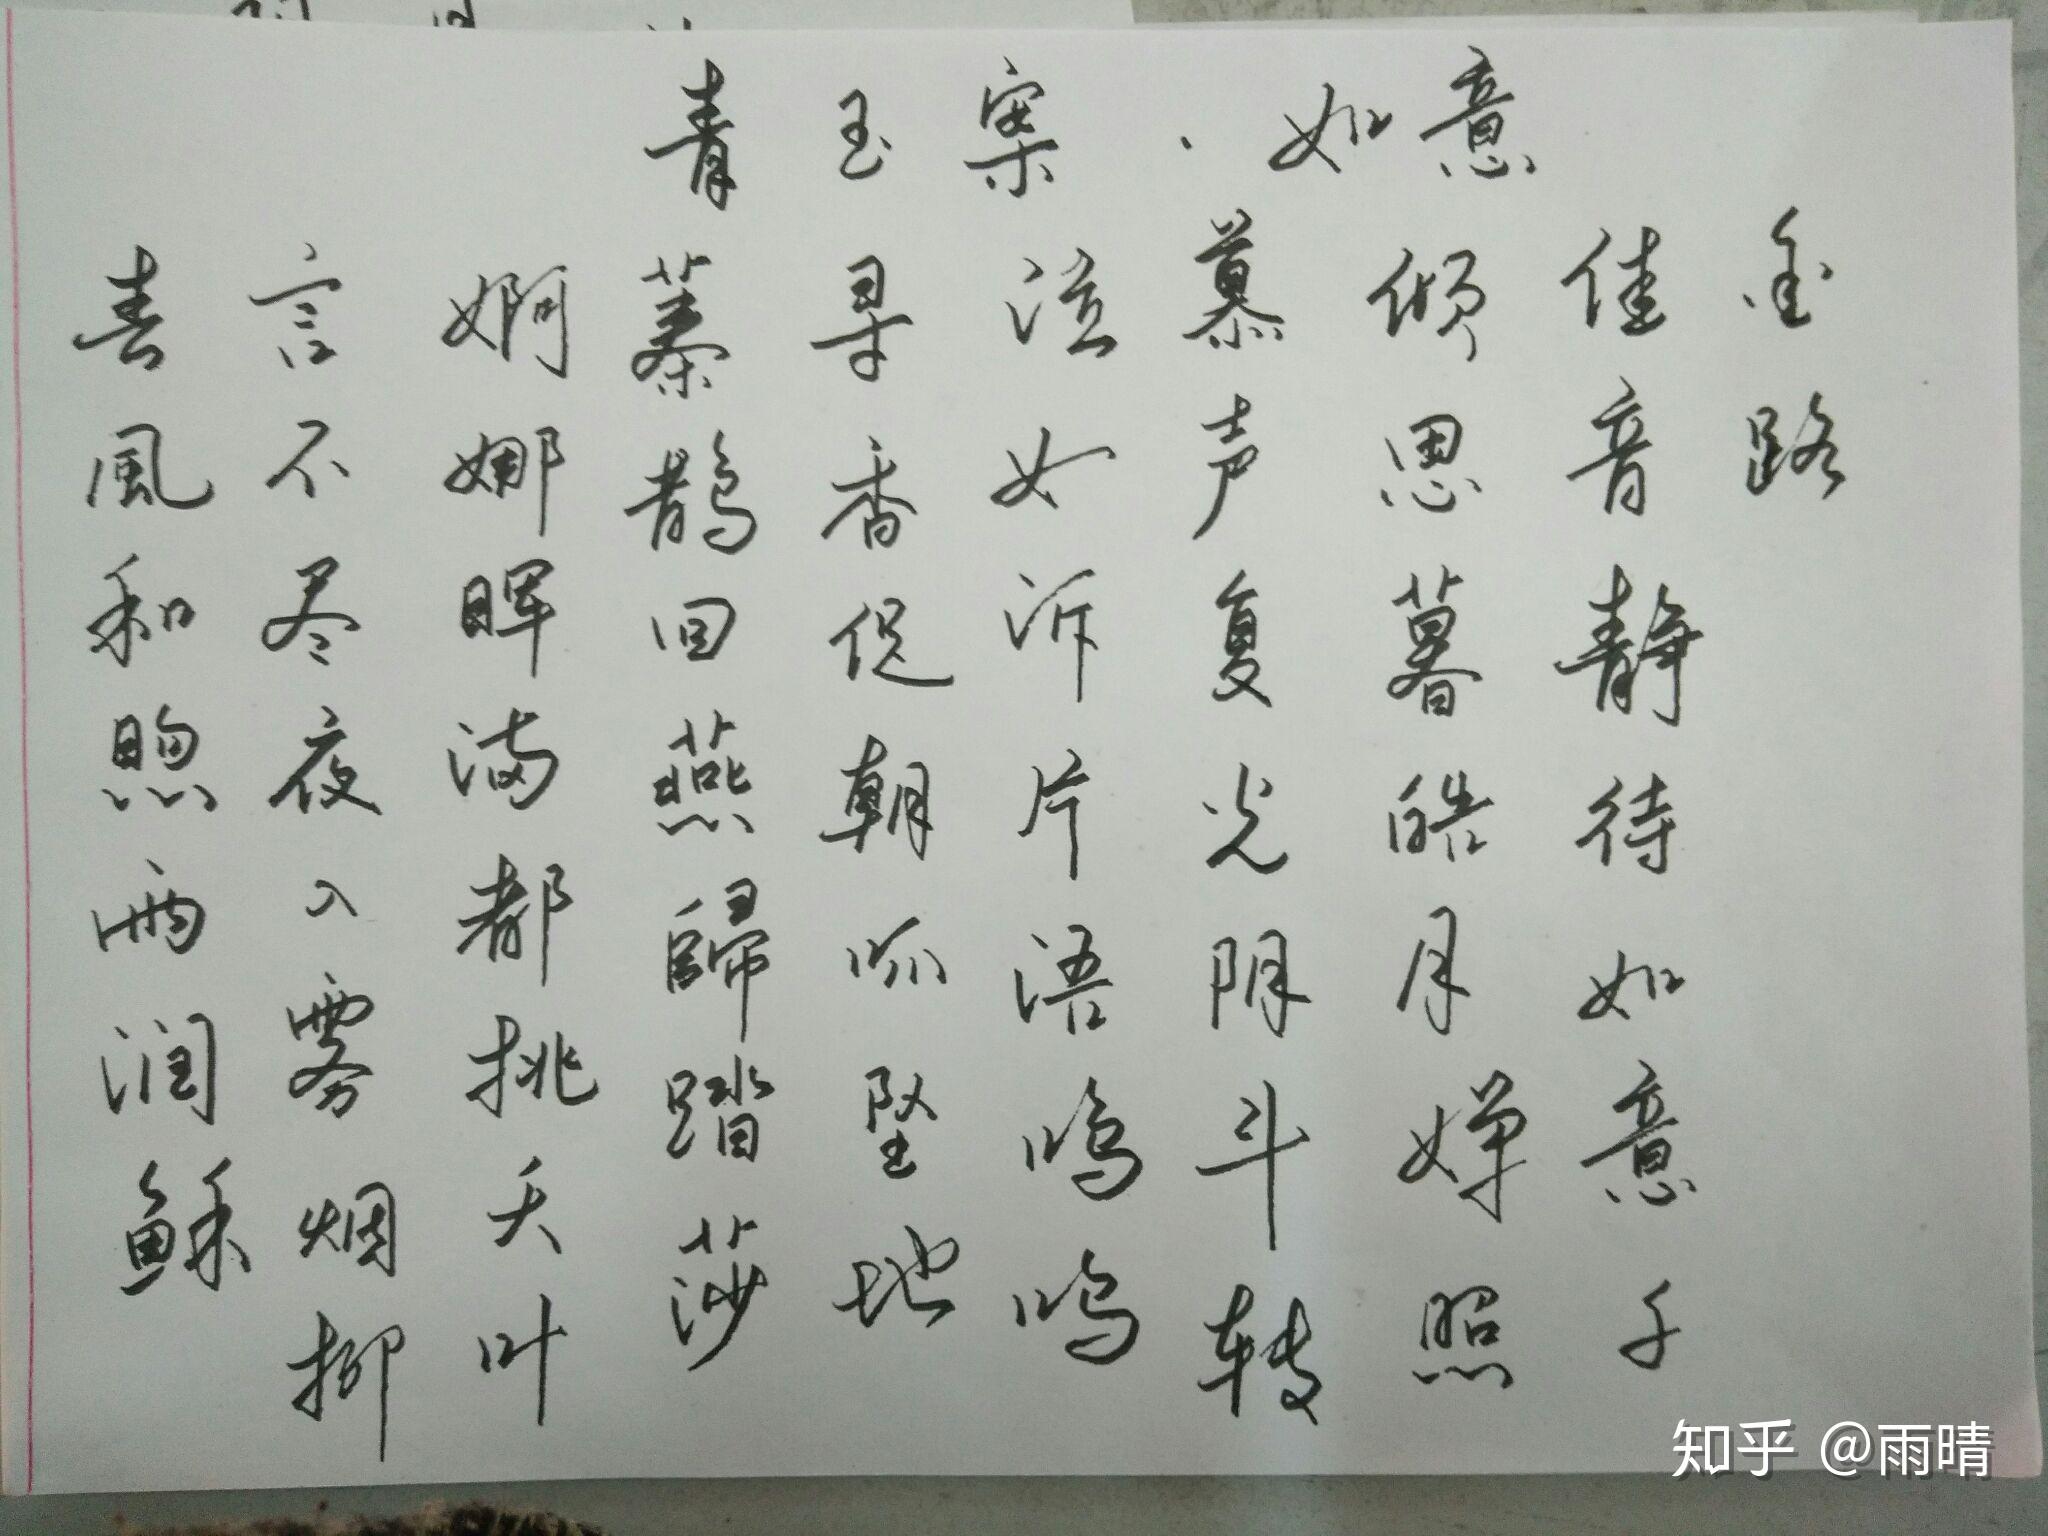 青玉案·如意
春風和煦雨润稣
言不尽夜入雾烟柳
婀娜晖满都挑夭叶
蓁鹊回燕歸踏莎
寻香促朝呱坠地
泣如诉片语呜呜
慕声复光阴斗转
倾思暮皓月婵照
佳音静待如意千
金路
知乎 @雨晴